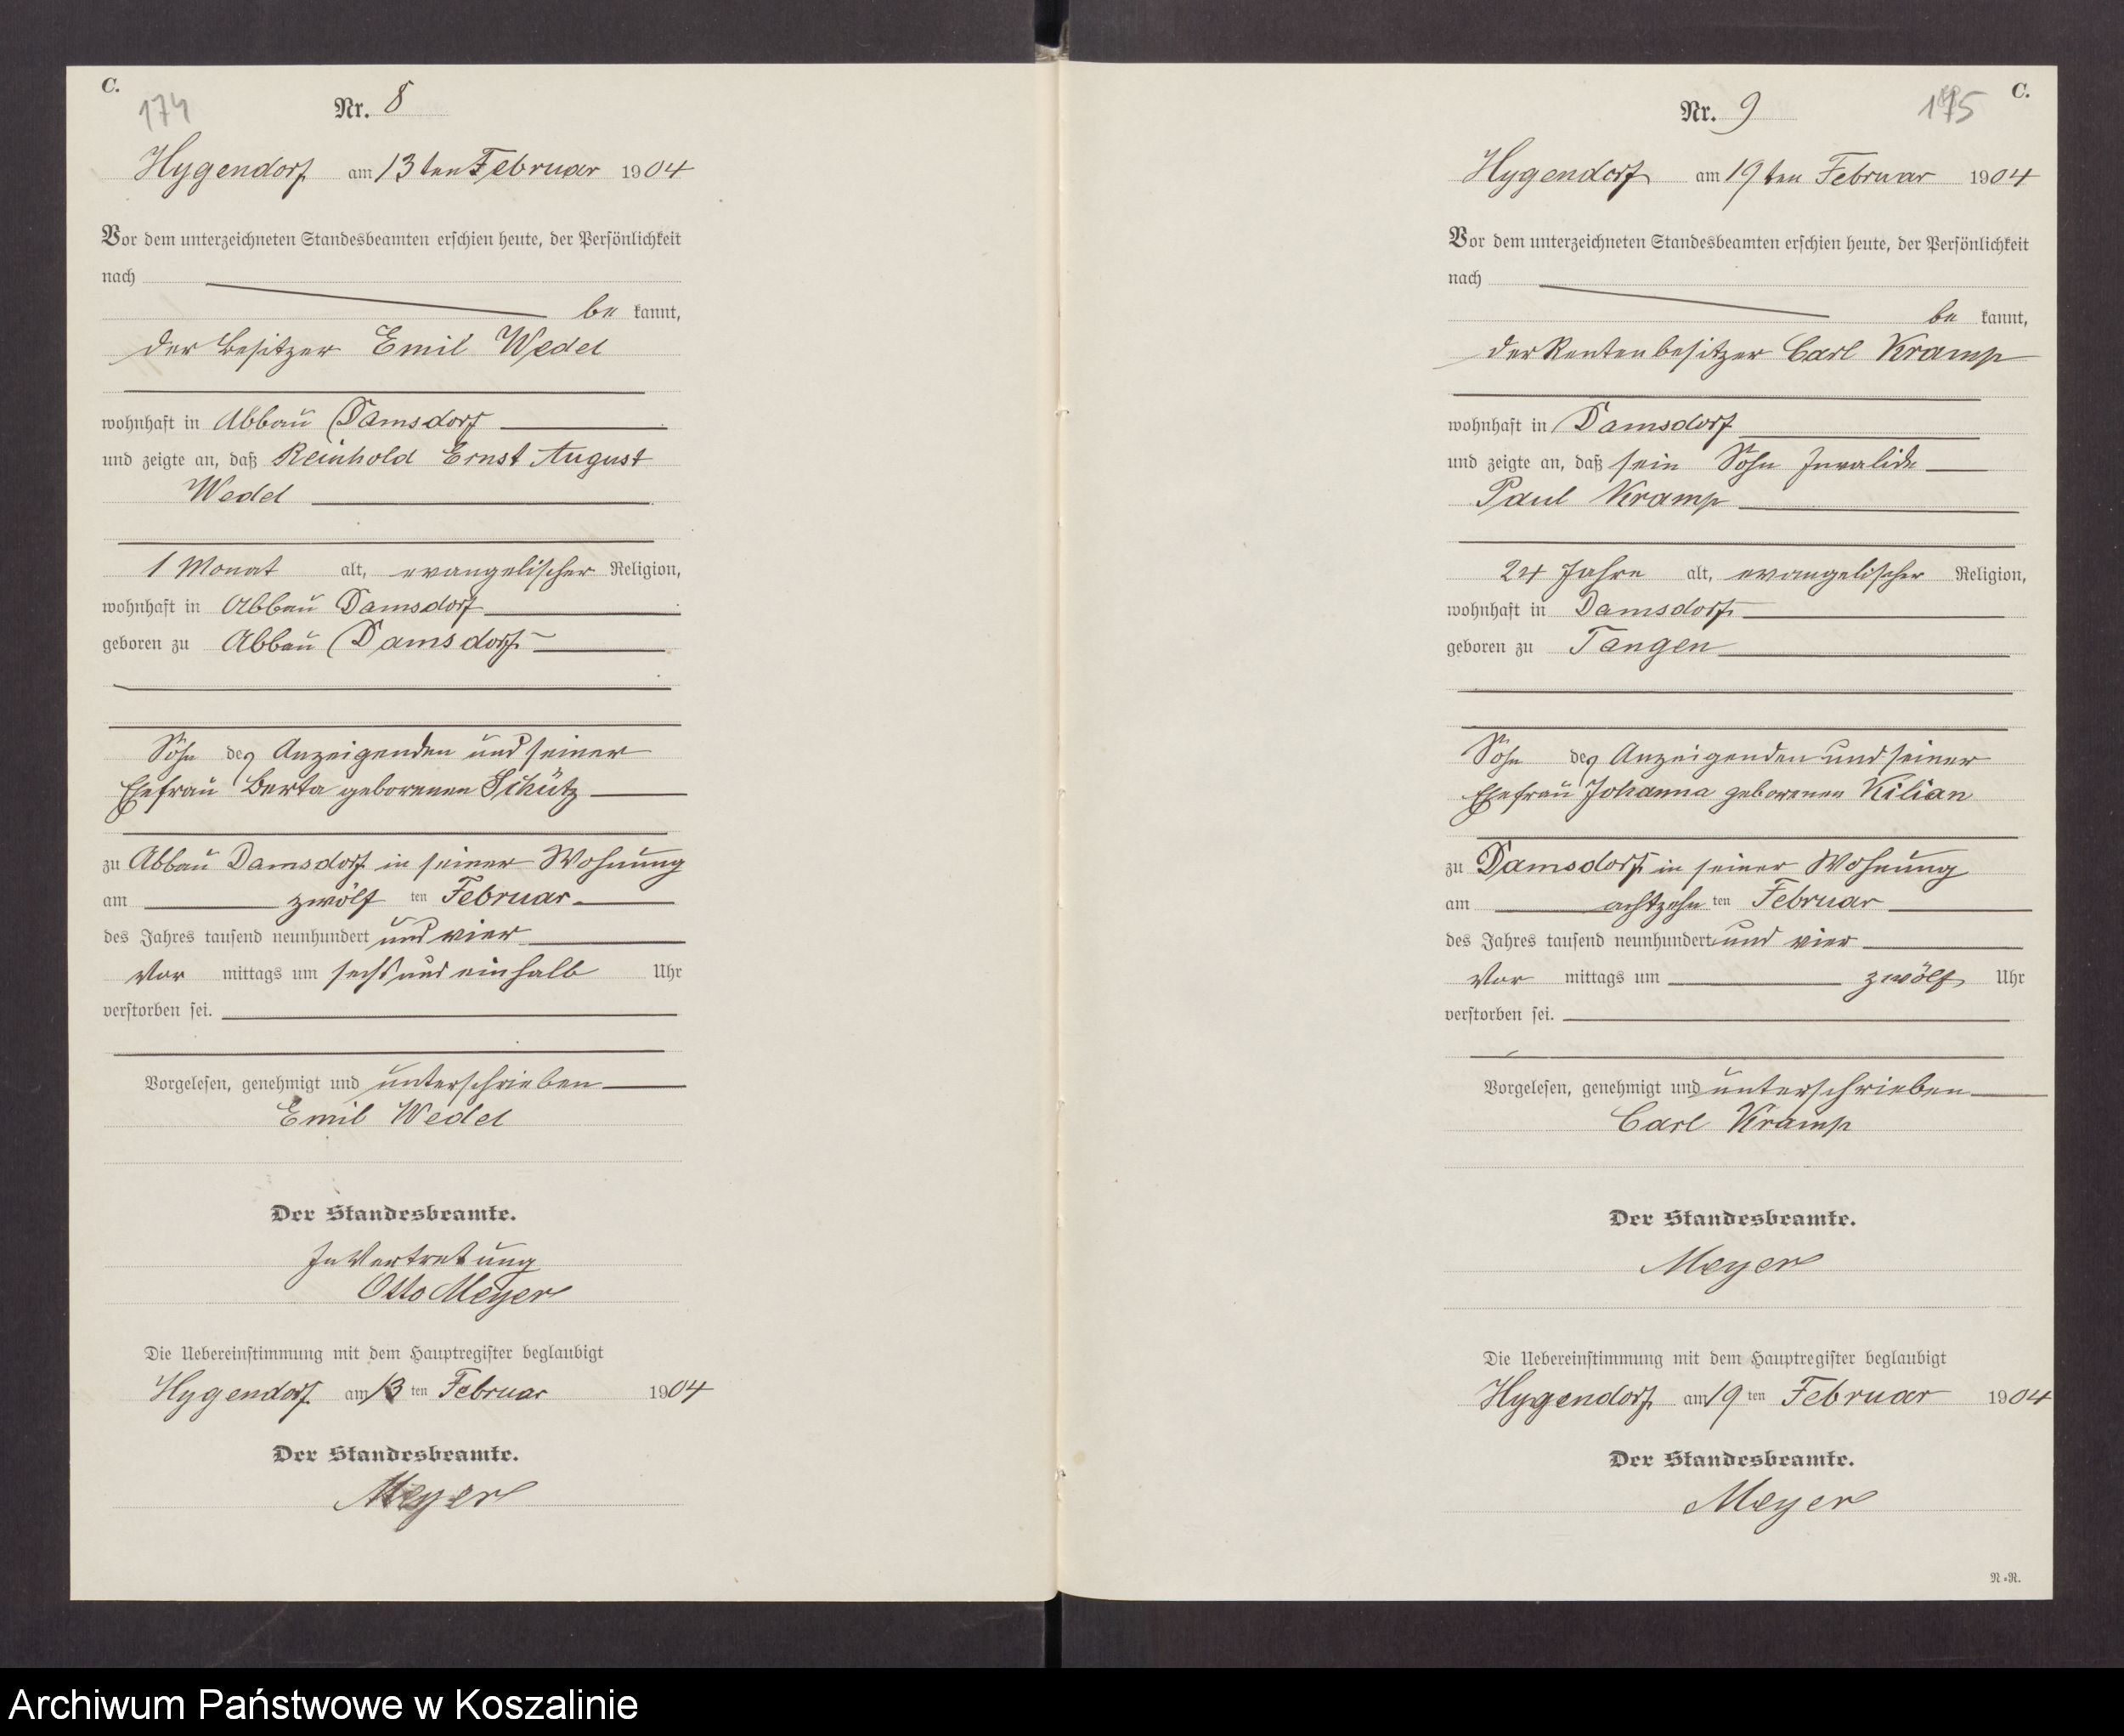 C.
174
Nr. 8
Hygendorf am 13ten Februar 1904
Vor dem unterzeichneten Standesbeamten erschien heute, der Persönlichkeit
nach
be kannt,
der Besitzer Emil Wedel
wohnhaft in Abbau Damsdorf
und zeigte an, daß Reinhold Ernst August
Wedel
1 Monat alt, evangelischer Religion,
wohnhaft in Abbau Damsdorf
geboren zu Abbau Damsdorf
Sohn des Anzeigenden und seiner
Ehefrau Berta geborenen Schütz
zu Abbau Damsdorf in seiner Wohnung
am zwölf ten Februar
des Jahres tausend neunhundert und vier
Vor mittags um sechs und einhalb Uhr
verstorben sei.
Vorgelesen, genehmigt und unterschrieben
Emil Wedel
Der Standesbeamte.
In Vertretung
Otto Meyer
Die Uebereinstimmung mit dem Hauptregister beglaubigt
Hygendorf am 13 ten Februar 1904
Der Standesbeamte.
Meyer
C.
175
Nr. 9
Hygendorf am 19ten Februar 1904
Vor dem unterzeichneten Standesbeamten erschien heute, der Persönlichkeit
nach
be kannt,
der Rentenbesitzer Carl Kramp
wohnhaft in Damsdorf
und zeigte an, daß sein Sohn Invalide
Paul Kramp
24 Jahre alt, evangelischer Religion,
wohnhaft in Damsdorf
geboren zu Tangen
Sohn des Anzeigenden und seiner
Ehefrau Johanna geborenen Kilian
zu Damsdorf in seiner Wohnung
am achtzehn ten Februar
des Jahres tausend neunhundert und vier
Vor mittags um zwölf Uhr
verstorben sei.
Vorgelesen, genehmigt und unterschrieben
Carl Kramp
Der Standesbeamte.
Meyer
Die Uebereinstimmung mit dem Hauptregister beglaubigt
Hygendorf am 19 ten Februar 1904
Der Standesbeamte.
Meyer
N.=R.
Archiwum Państwowe w Koszalinie